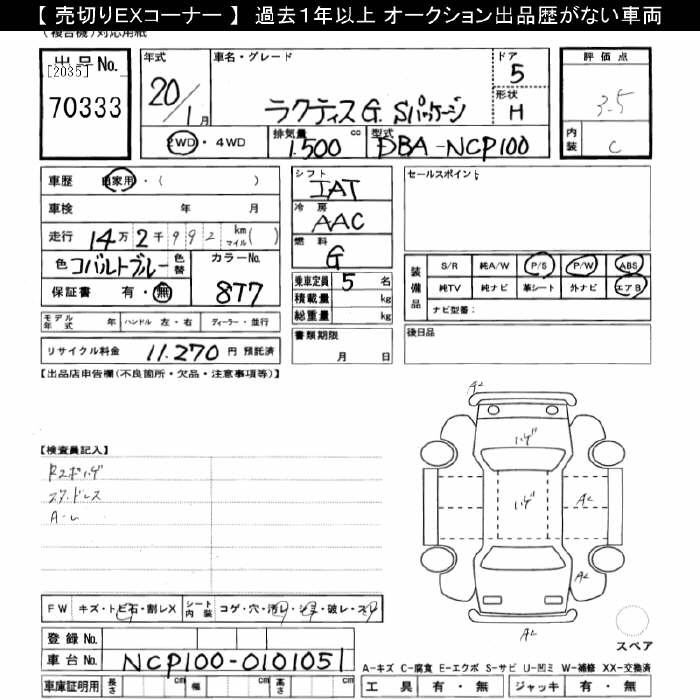 【 売切りEXコーナー 】 過去1年以上 オークション出品歴がない車両
(複合機)対応用紙
出品No.
[2035]
70333
年式
20/1月
車名・グレード
ラクティス G. Sパッケージ
ドア
5
形状
H
2WD・4WD
排気量
1.500 cc
型式
DBA-NCP100
評価点
3.5
内装
C
車歴 自家用・( )
車検 年 月
走行 14万2千992 km マイル( )
色 コバルトブルー 色替
カラーNo.
8T7
保証書 有・無
モデル年式 年 ハンドル 左・右 ディーラー・並行
リサイクル料金 11.270 円 預託済
シフト
IAT
冷房
AAC
燃料
G
乗車定員 5 名
積載量 kg
総重量 kg
書類期限
月 日
セールスポイント
装備品
S/R 純A/W P/S P/W ABS
純TV 純ナビ 革シート 外ナビ エアB
ナビ型番:
後日品
【出品店申告欄(不良箇所・欠品・注意事項等)】
【検査員記入】
A2
ハゲ
ハゲ
A2
A2
A2
スペア
FW キズ・トビ石・割レX シート内装 コゲ・穴・汚レ・シミ・破レ・スレ
登録No.
車台No. NCP100-0101051
車庫証明用 長さ cm 幅 cm 高さ cm
A-キズ C-腐食 E-エクボ S-サビ U-凹ミ W-補修 XX-交換済
工具 有・無 ジャッキ 有・無